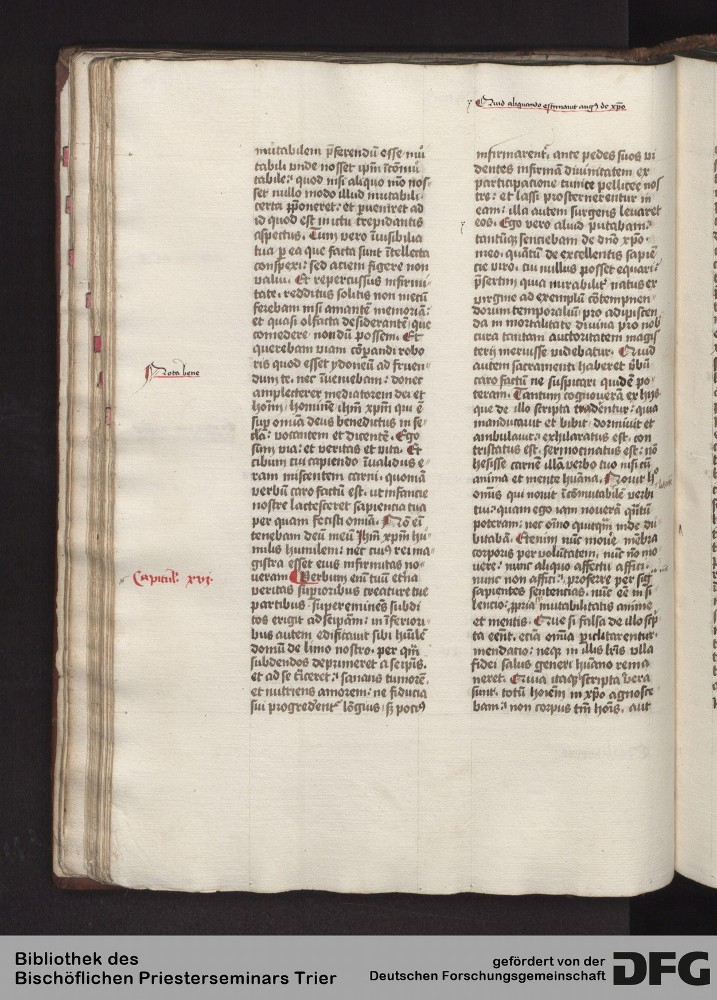 Quid aliquando estimauit augꝰ de xp̄o
mutabilem p̄ferendū esse mū
tabili vnde nosset ip̄m īcōmū
tabile: quod nisi aliquo mō nos
set nullo modo illud mutabili
certa p̄poneret: et ꝑueniret ad
id quod est in ictu trepidantis
aspectus. Tum vero īuisibilia
tua ꝑ ea que facta sunt ītellecta
conspexi: sed aciem figere non
valui. Et repercussus infirmi
tate. redditus solitis non mecū
ferebam nisi amantē memoriā:
et quasi olfacta desiderantē que
comedere nondū possem. Et
querebam viam cōpandi robo
ris quod esset ydoneū ad fruen
dum te. nec īueniebam: donec
amplecterer mediatorem dei et
hoīm hominē ih̄m xp̄m qui ē
suꝑ omīa deus benedictus in se
cl̄a: vocantem et dicentē. Ego
sum via: et veritas et vita. Et
cibum cui capiendo īualidus e
ram miscentem carni. quoniā
verbū caro factū est. vt infancie
nostre lactesceret sapiencia tua
per quam fecisti omīa. Nō eī
tenebam deū meū Jhm̄ xp̄m hu
milis humilem: nec cuiꝰ rei ma
gistra esset eius infirmitas no
ueram Verbum em̄ tuū et̄na
veritas suꝑioribus creature tue
partibus suꝑeminēs subdi
tos erigit ad seipām: in īferiori
bus autem edificauit sibi hūilē
domū de limo nostro. per qm̄
subdendos deprimeret a seipīs.
et ad se t̄iceret: sanans tumorē.
et nutriens amorem: ne fiducia
sui progrederent᷑ lōgius: sꝫ pociꝰ
Nota bene
Capitul᷑ xvi.
infirmarent᷑. ante pedes suos vi
dentes infirmā diuinitatem ex
participatione tunice pellicee nos
tre: et lassi prosternerentur in
eam: illa autem surgens leuaret
eos. Ego vero aliud putabam:
tantūqꝫ senciebam de dn̄o xp̄o
meo. quātū de excellentis sapiē
cie viro. cui nullus posset equari:
p̄sertim quia mirabilit᷑ natus ex
virgine ad exemplū cōtempnen
dorum temporaliū pro adipiscen
da īmortalitate diuina pro nob̄
cura tantam auctoritatem magis
terij meruisse videbatur. Quid
autem sacramenti haberet vbū
caro factū ne suspicari quidē po
teram. Tantum cognoueram ex hijs
que de illo scripta tradentur: quia
manducauit et bibit. dormiuit et
ambulauit. exhilaratus est. con
tristatus est. sermocinatus est: nō
hesisse carnē illā verbo tuo nisi cū
anima et mente hūana. Nouit h̊
omīs qui nouit īcōmutabilē verbi
tui. quam ego iam noueram qn̄tū
poteram: nec oīno quitqm̄ inde du
bitabā. Etenim nūc mouē mēbra
corporis per volūtatem. nūc nō mo
uere: nunc aliquo affectū affici.
nunc non affici: proferre per sig
sapientes sentencias. nūc eē in si
lencio: ꝓpria mutabilitatis anime
et mentis. Que si falsa de illo sc̄p
ta eent̄. eciā omīa piclitarentur
mendacio: neqꝫ in illis lr̄is vlla
fidei salus generi hūano rema
neret. Quia itaqꝫ scripta vera
sunt. totū hoīem in xp̄o agnosce
bam: non corpus tm̄ hoīs. aut
Bibliothek des
Bischöflichen Priesterseminars Trier
gefördert von der
Deutschen Forschungsgemeinschaft
DFG